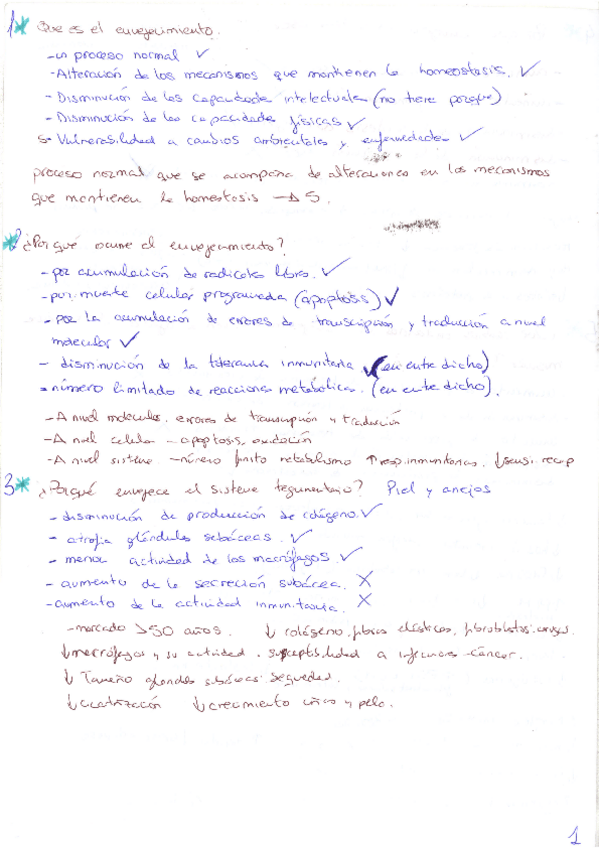 1* Que es el envejecimiento.
-un proceso normal ✓
-Alteración de los mecanismos que mantienen la homeostasis. ✓
- Disminución de las capacidades intelectuales (no tiene porque)
- Disminución de las capacidades físicas ✓
5- Vulnerabilidad a cambios ambientales y enfermedades ✓
proceso normal que se acompaña de alteraciones en los mecanismos
que mantienen la homeostasis → 5.
2* ¿Por qué ocurre el envejecimiento?
- por acumulación de radicales libres. ✓
- por muerte celular programada (apoptosis) ✓
- por la acumulación de errores de transcripción y traducción a nivel
molecular ✓
- disminución de la tolerancia inmunitaria ✓ (en entre dicho)
- número limitado de reacciones metabólicas. (en entre dicho).
-A nivel molecular, errores de transcripción y traducción
-A nivel celular - apoptosis, oxidación
-A nivel sistema -número finito metabolismo ↑resp.inmunitarias, ↓sensi. recep
3* ¿Por qué envejece el sistema tegumentario? Piel y anejos
- disminución de producción de colágeno. ✓
- atrofia glándulas sebáceas. ✓
- menor actividad de los macrófagos. ✓
- aumento de la secreción subácea. X
-aumento de la actividad inmunitaria. X
-marcado >50 años. ↓ colágeno, fibras elásticas, fibroblastos
↓macrófagos y su actividad. susceptibilidad a infecciones-cáncer.
↓ Tamaño glándulas sebáceas: sequedad.
↓cicatrización ↓crecimiento uñas y pelo.
1